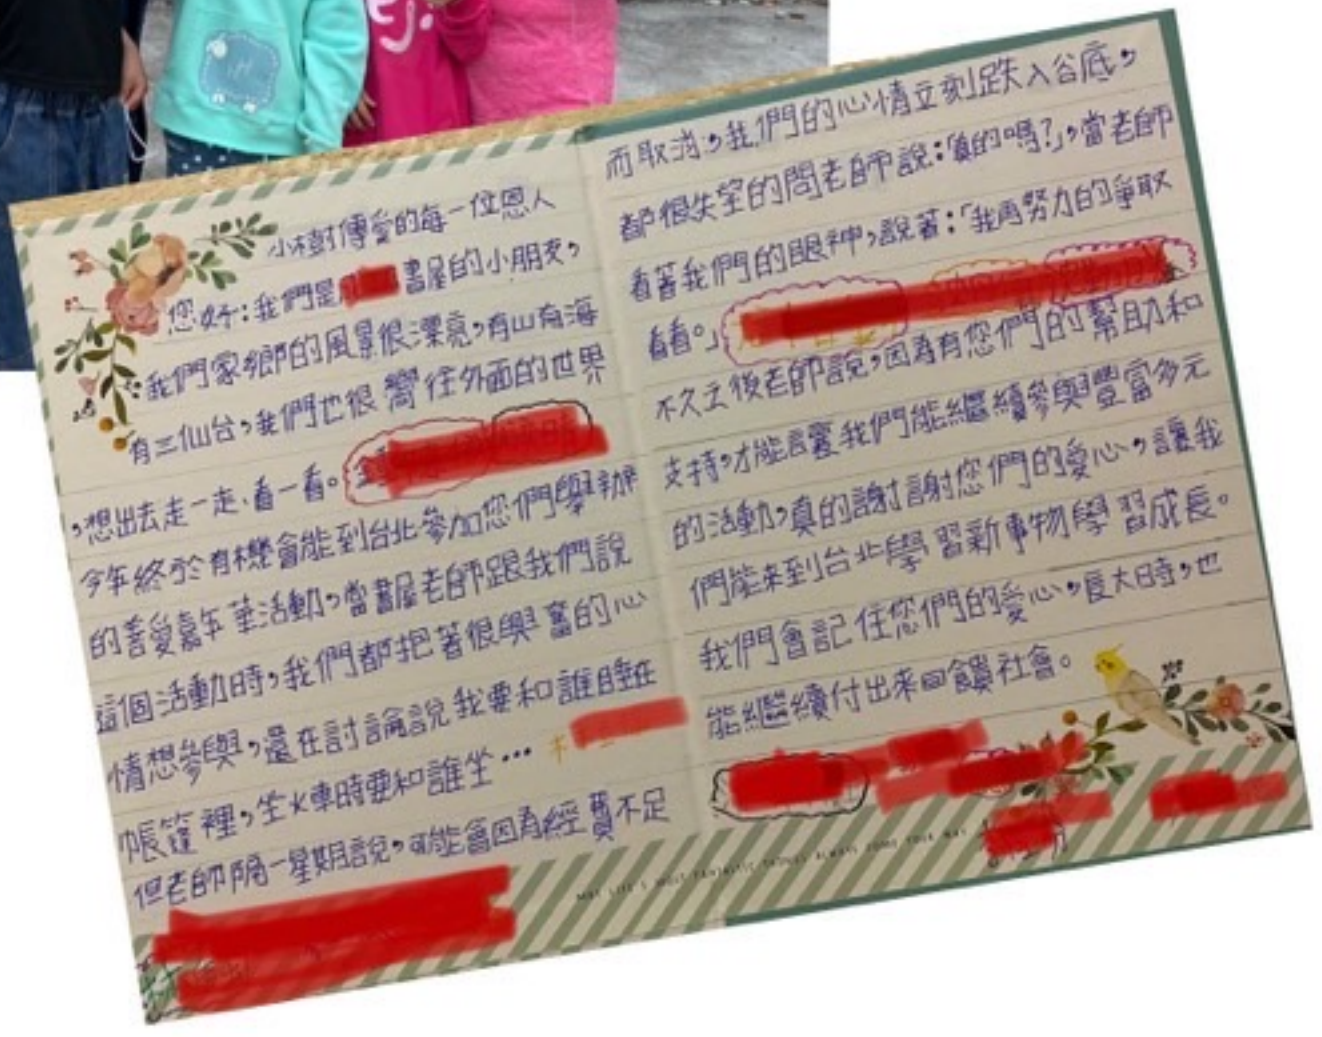 小樹傳愛的每一位恩人
您好:我們是書屋的小朋友,
我們家鄉的風景很漂亮,有山有海
有三仙台,我們也很嚮往外面的世界
,想出去走一走、看一看。
今年終於有機會能到台北參加您們舉辦
的善愛嘉年華活動,當書屋老師跟我們說
這個活動時,我們都抱著很興奮的心
情想參與,還在討論說我要和誰睡在
帳篷裡,坐火車時要和誰坐…
但老師隔一星期說,可能會因為經費不足
而取消,我們的心情立刻跌入谷底,
都很失望的問老師說:「真的嗎?」,當老師
看著我們的眼神,說著:「我再努力的爭取
看看。」
不久之後老師說,因為有您們的幫助和
支持,才能讓我們能繼續參與豐富多元
的活動,真的謝謝您們的愛心,讓我
們能來到台北學習新事物學習成長。
我們會記住您們的愛心,長大時,也
能繼續付出來回饋社會。